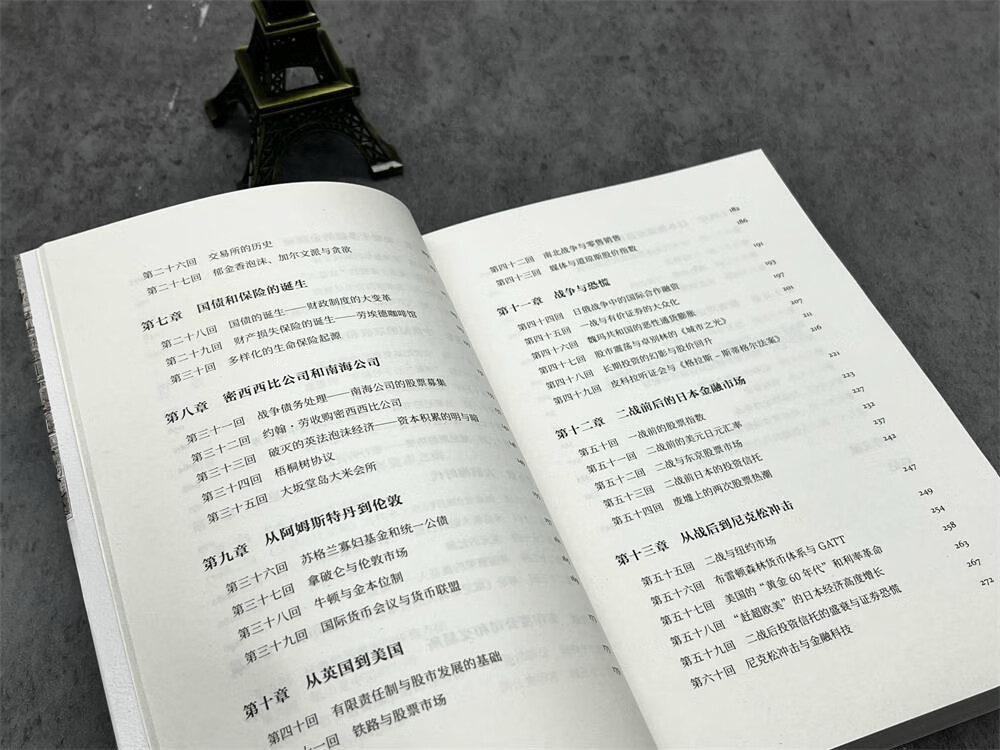 第二十六回 交易所的历史
第二十七回 郁金香泡沫、加尔文派与贪欲
第七章 国债和保险的诞生
第二十八回 国债的诞生——财政制度的大变革
第二十九回 财产损失保险的诞生——劳埃德咖啡馆
第三十回 多样化的生命保险起源
第八章 密西西比公司和南海公司
第三十一回 战争债务处理——南海公司的股票募集
第三十二回 约翰·劳收购密西西比公司
第三十三回 破灭的英法泡沫经济——资本积累的明与暗
第三十四回 梧桐树协议
第三十五回 大坂堂岛大米会所
第九章 从阿姆斯特丹到伦敦
第三十六回 苏格兰寡妇基金和统一公债
第三十七回 拿破仑与伦敦市场
第三十八回 牛顿与金本位制
第三十九回 国际货币会议与货币联盟
第十章 从英国到美国
第四十回 有限责任制与股市发展的基础
十一回 铁路与股票市场
182
第四十二回 南北战争与零售销售 186
第四十三回 媒体与道琼斯股价指数
191
第十一章 战争与恐慌 193
第四十四回 日俄战争中的国际合作融资 197
第四十五回 一战与有价证券的大众化 201
第四十六回 魏玛共和国的恶性通货膨胀 207
第四十七回 股市震荡与卓别林的《城市之光》 211
第四十八回 长期投资的幻影与股价回升 216
第四十九回 皮科拉听证会与《格拉斯–斯蒂格尔法案》
221
第十二章 二战前后的日本金融市场 223
第五十回 一战前的股票指数 227
第五十一回 二战前的美元日元汇率 232
第五十二回 二战与东京股票市场 237
第五十三回 二战前日本的投资信托 242
第五十四回 废墟上的两次股票热潮
247
第十三章 从战后到尼克松冲击 249
第五十五回 二战与纽约市场 254
第五十六回 布雷顿森林货币体系与GATT 258
第五十七回 美国的“黄金60年代”和利率革命 263
第五十八回 “赶超欧美”的日本经济高度增长 267
第五十九回 二战后投资信托的盛衰与证券恐慌 272
第六十回 尼克松冲击与金融科技